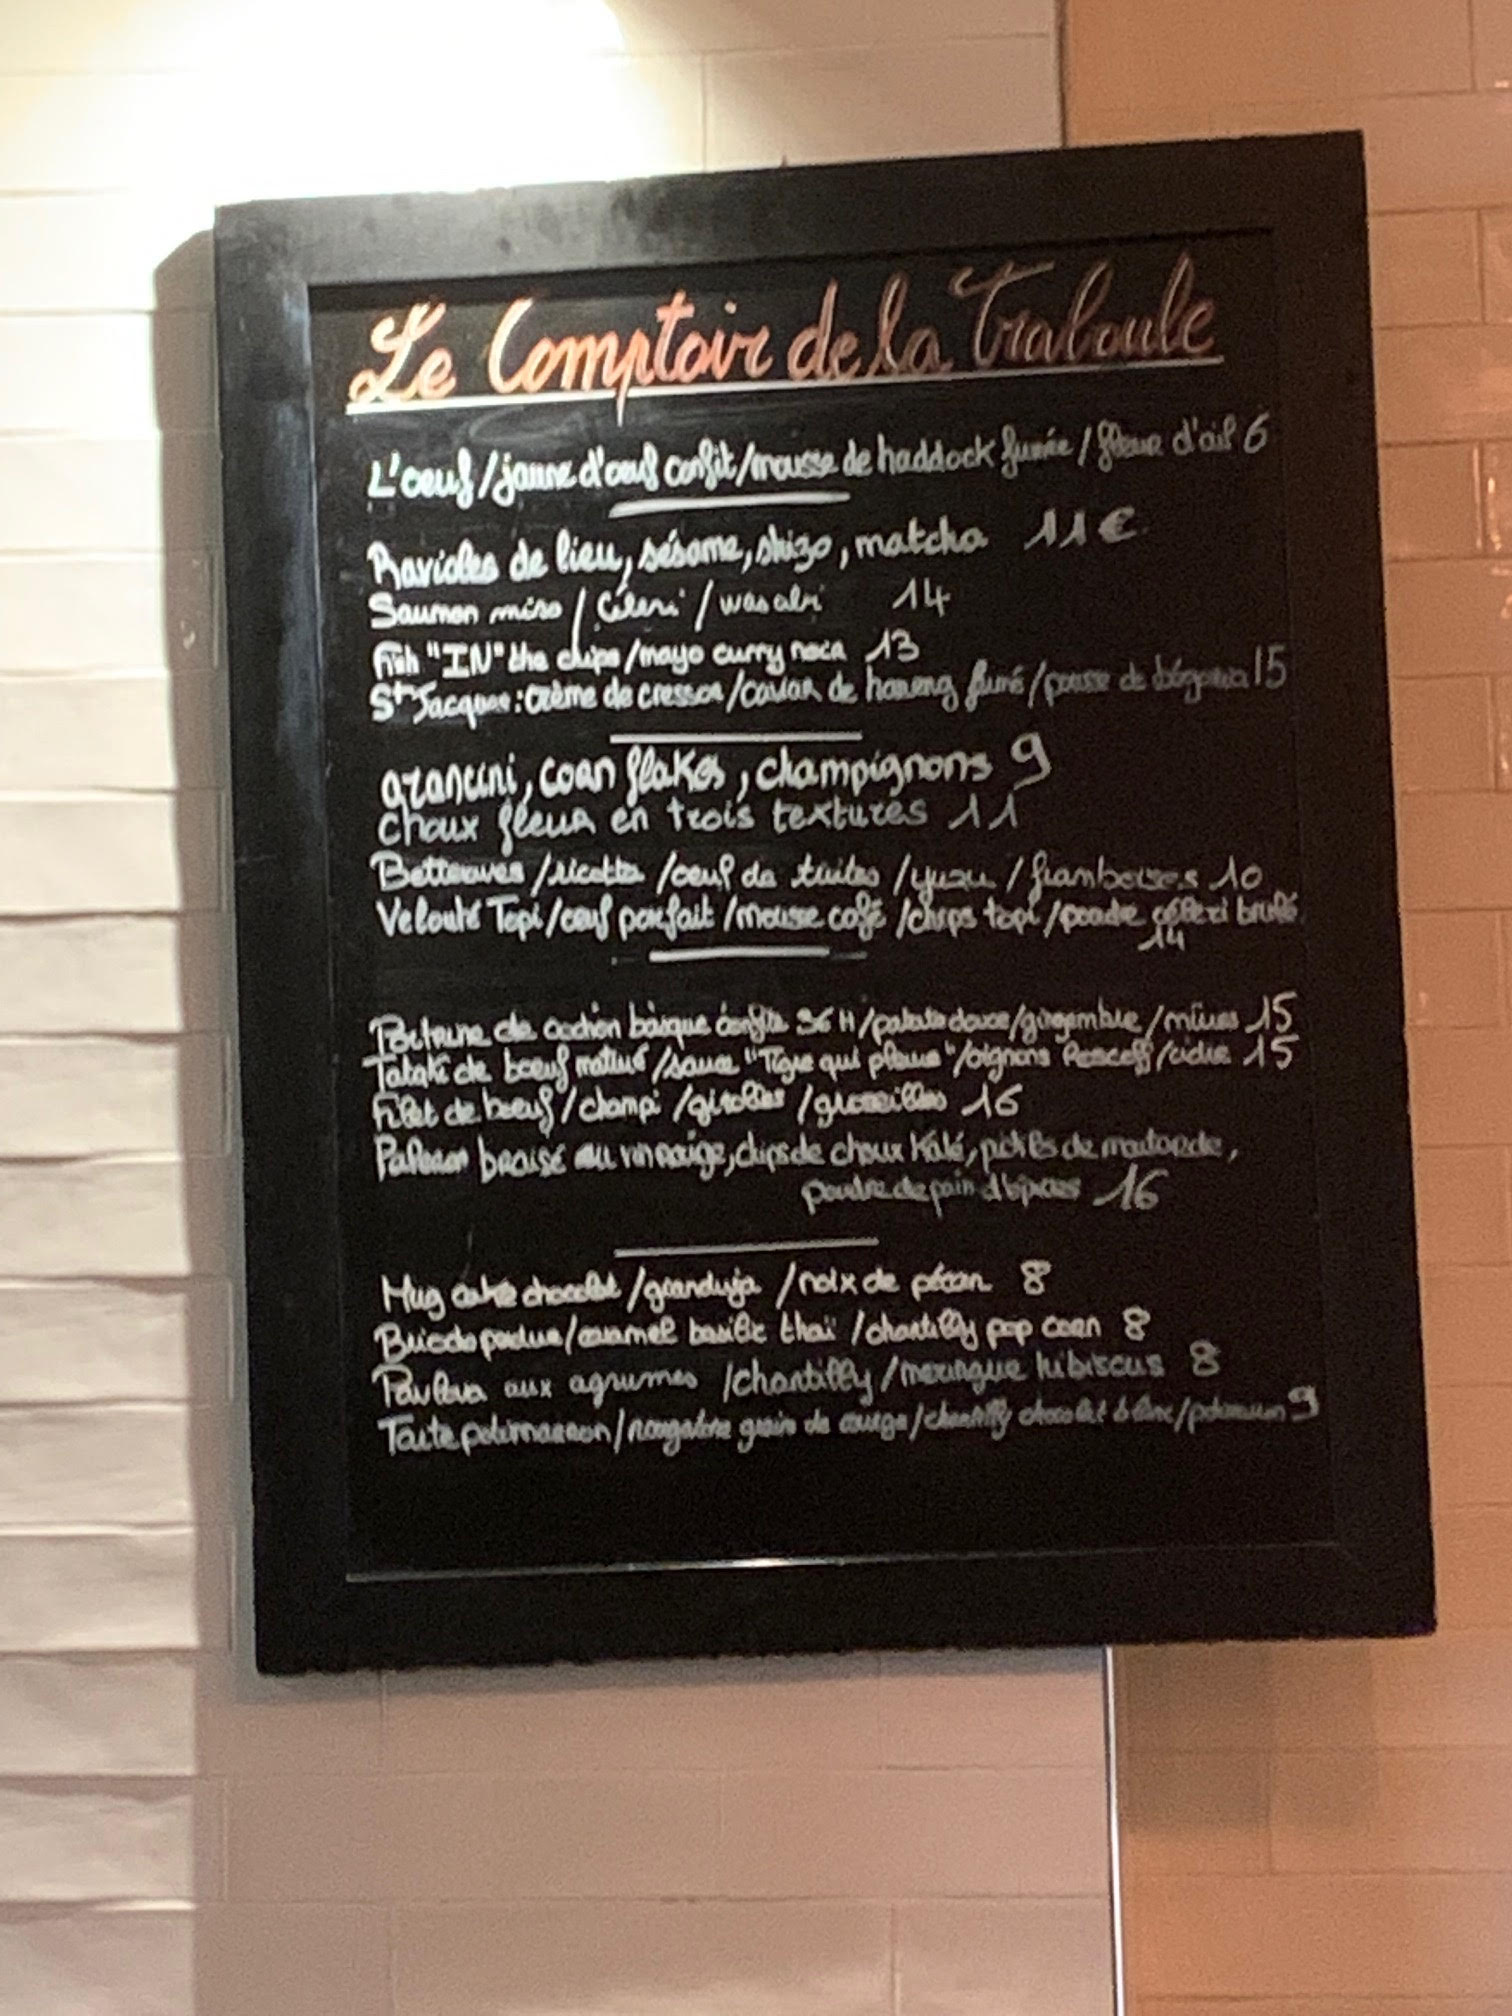 Le Comptoir de la Traboule
L'oeuf /jaune d'oeuf confit/mousse de haddock fumée / fleur d'ail 6
Ravioles de lieu, sésame, shizo, matcha 11€
Saumon miso / Céleri / wasabi 14
Fish "IN" the chips/mayo curry nora 13
St Jacques: crème de cresson/caviar de hareng fumé/pousse de bégonia 15
arancini, corn flakes, champignons 9
choux fleur en trois textures 11
Betteraves /ricotta /oeuf de truites /yuzu / framboises 10
Velouté Topi/oeuf parfait /mousse café /chips topi /poudre céleri brulé
14
Poitrine de cochon basque confite 36 H/patate douce/gingembre/mûres 15
Tataki de boeuf maturé /sauce "Tigre qui pleure"/oignons Roscoff/cidre 15
Filet de boeuf / champi /girolles /groseilles 16
Paleron braisé au vinaigre, chips de choux Kalé, pickles de moutarde,
poudre de pain d'épices 16
Mug cake chocolat /gianduja /noix de pécan 8
Brioche perdue/caramel basilic thaï /chantilly pop corn 8
Pavlova aux agrumes /chantilly /meringue hibiscus 8
Tarte potimarron/nougatine grain de courge/chantilly chocolat blanc/potimarron 9